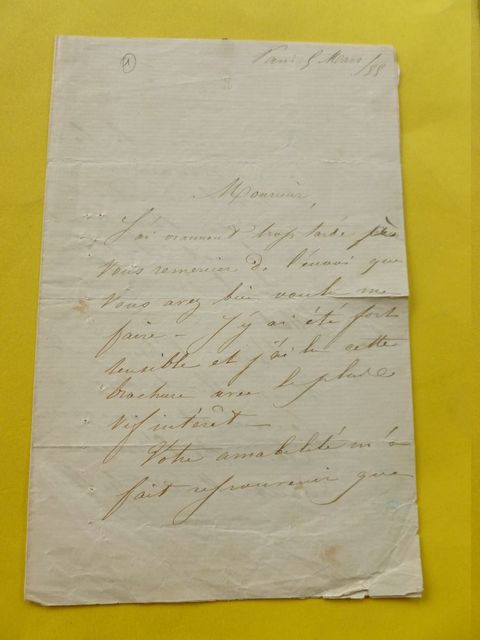 1
Paris 5 Mars /88
Monsieur,
J'ai vraiment trop tardé à
vous remercier de l'envoi que
vous avez bien voulu me
faire - J'y ai été fort
sensible et j'ai lu cette
brochure avec le plus
vif intérêt -
Votre amabilité m'a
fait ressouvenir que